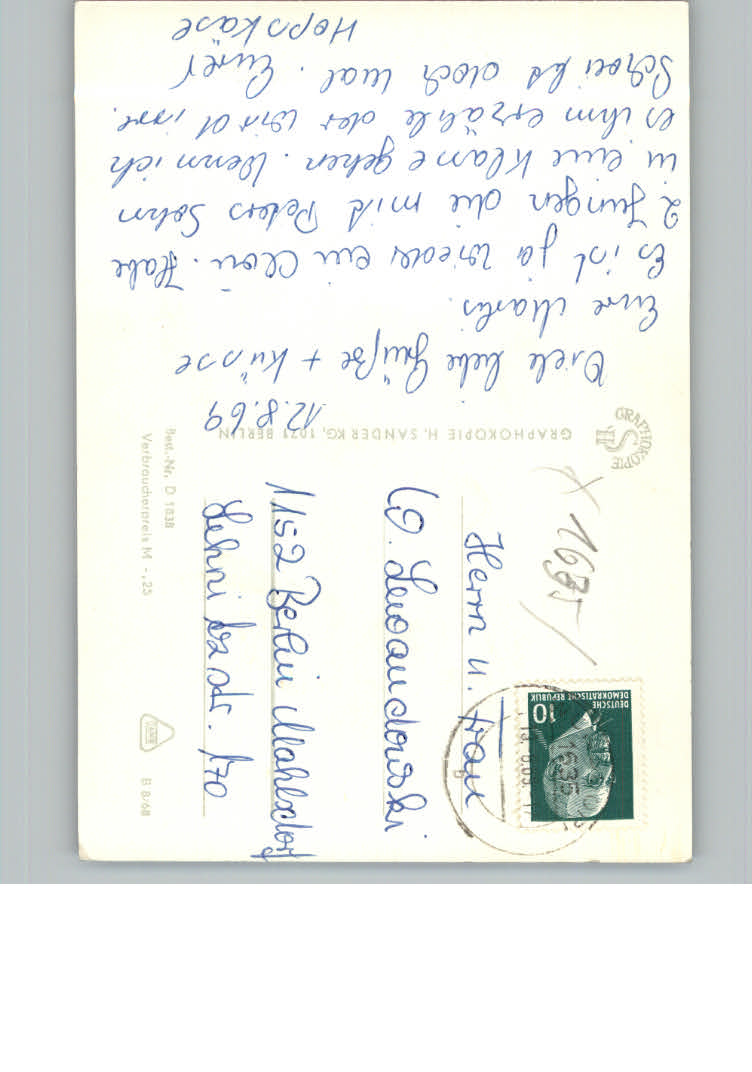 12.8.69
Viele liebe Grüße + Küsse
Eure Marlis.
Es ist ja wieder ein Clou. Habe
2 Jungen die mit Peters Sohn
in eine Klasse gehen. Wenn ich
es ihm erzähle der wird irre.
Schreibs doch mal. Eurer
Hopskäse
GRAPHOKOPIE
GRAPHOKOPIE H. SANDER KG, 1071 BERLIN
Best.-Nr. D 1838
Verbraucherpreis M -,25
B 8/68
1635
DEUTSCHE
DEMOKRATISCHE REPUBLIK
10
1635
Herrn u. Frau
G. Lewandowski
1152 Berlin Mahlsdorf
Lehnitzstr. 170